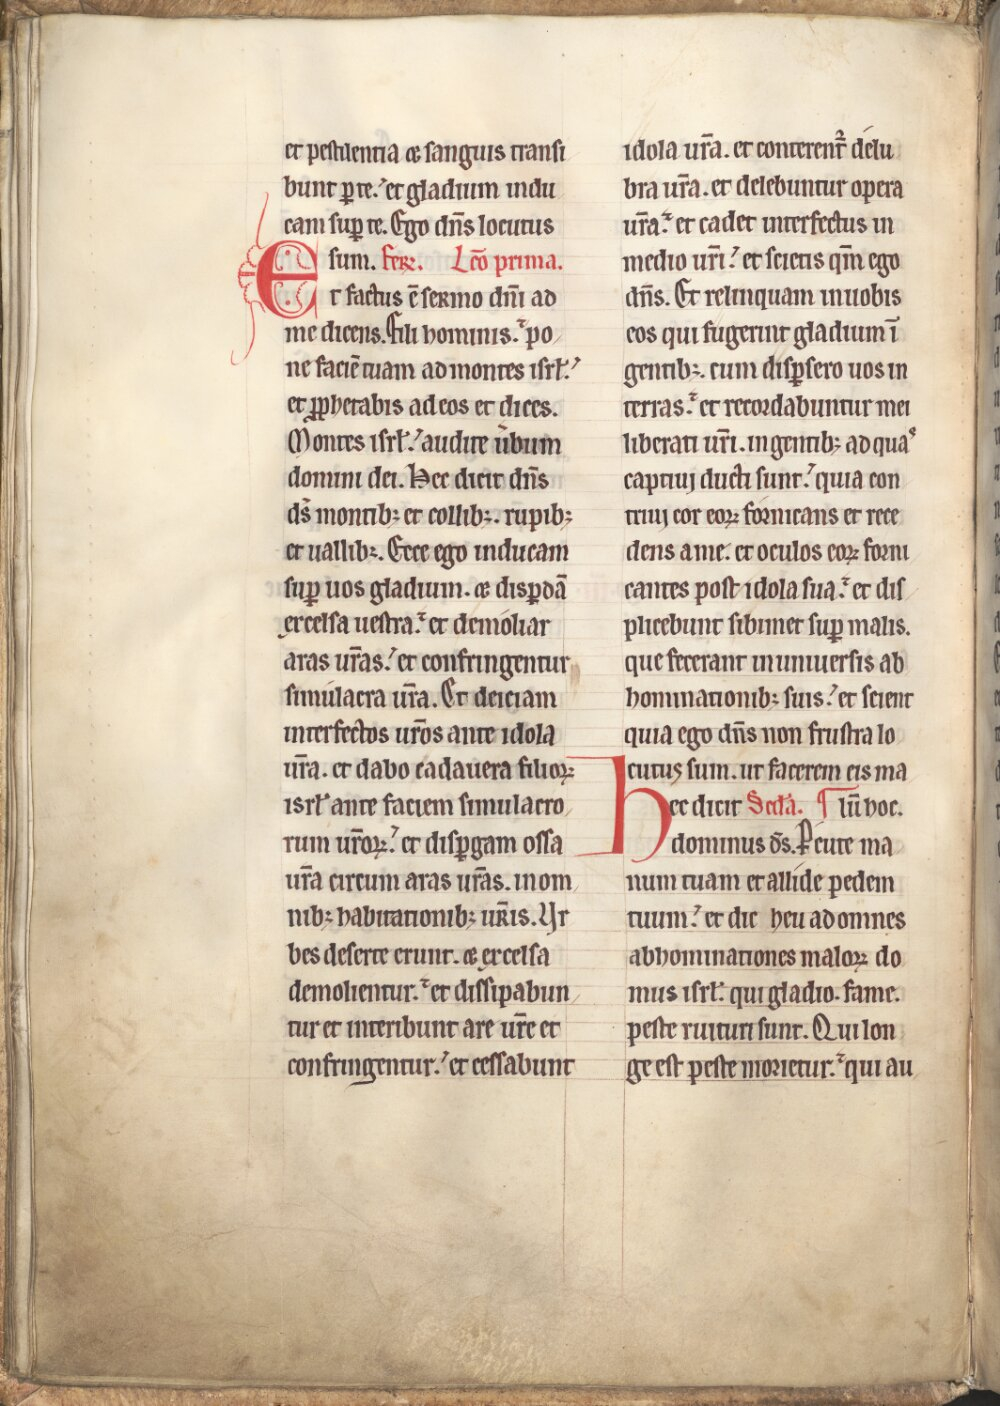 et pestilentia & sanguis transi
bunt p̲ te. et gladium indu
cam sup̲ te. Ego dn̄s locutus
sum. fer̄. Lc̄o prima.
Et factus ē sermo dn̄i ad
me dicens. Fili hominis. po
ne faciē tuam ad montes isrł.
et ꝓphetabis ad eos et dices.
Montes isrł. audite ūbum
domini dei. Hec dicit dn̄s
ds̄ montibꝫ et collibꝫ. rupibꝫ
et uallibꝫ. Ecce ego inducam
sup̲ uos gladium. & disp̲dā
excelsa uestra. et demoliar
aras ur̄as. et confringentur
simulacra ur̄a. Et deiciam
interfectos ur̄os ante idola
ur̄a. et dabo cadauera filioꝝ
isrł ante faciem simulacro
rum ur̄oꝝ. et disp̲gam ossa
ur̄a circum aras ur̄as. in om
nibꝫ habitationibꝫ ur̄is. Vr
bes deserte erunt. & excelsa
demolientur. et dissipabun
tur et interibunt are ur̄e et
confringentur. et cessabunt
idola ur̄a. et conterent᷑ delu
bra ur̄a. et delebuntur opera
ur̄a. et cadet interfectus in
medio ur̄i. et scietis qm̄ ego
dn̄s. Et relinquam in uobis
eos qui fugerint gladium ī
gentibꝫ. cum disp̲sero uos in
terras. et recordabuntur mei
liberati ur̄i. in gentibꝫ ad quas
captiuj ducti sunt. quia con
triuj cor eoꝝ fornicans et rece
dens a me. et oculos eoꝝ forni
cantes post idola sua. et dis
plicebunt sibimet sup̲ malis.
que fecerant in uniuersis ab
hominationibꝫ suis. et scient
quia ego dn̄s non frustra lo
cutus sum. ut facerem eis ma
Hec dicit Scd̄a. ¶ lū hoc.
dominus ds̄. Percute ma
num tuam et allide pedem
tuum. et dic heu ad omnes
abhominationes maloꝝ do
mus isrł. qui gladio. fame.
peste ruituri sunt. Qui lon
ge est peste morietur. qui au